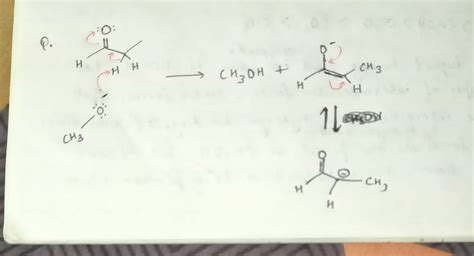 P.
:O:
H
H H
:O:
CH3
CH3OH +
O
H
CH3
H
O
CH3
H